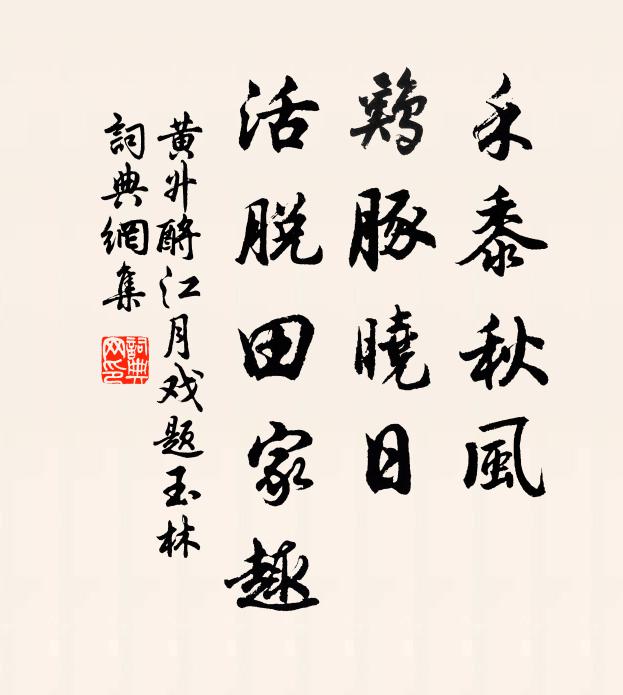 禾黍秋風
鷄豚曉日
活脱田家趣
黄升酹江月戏题玉林
詞典網集
詞典網印